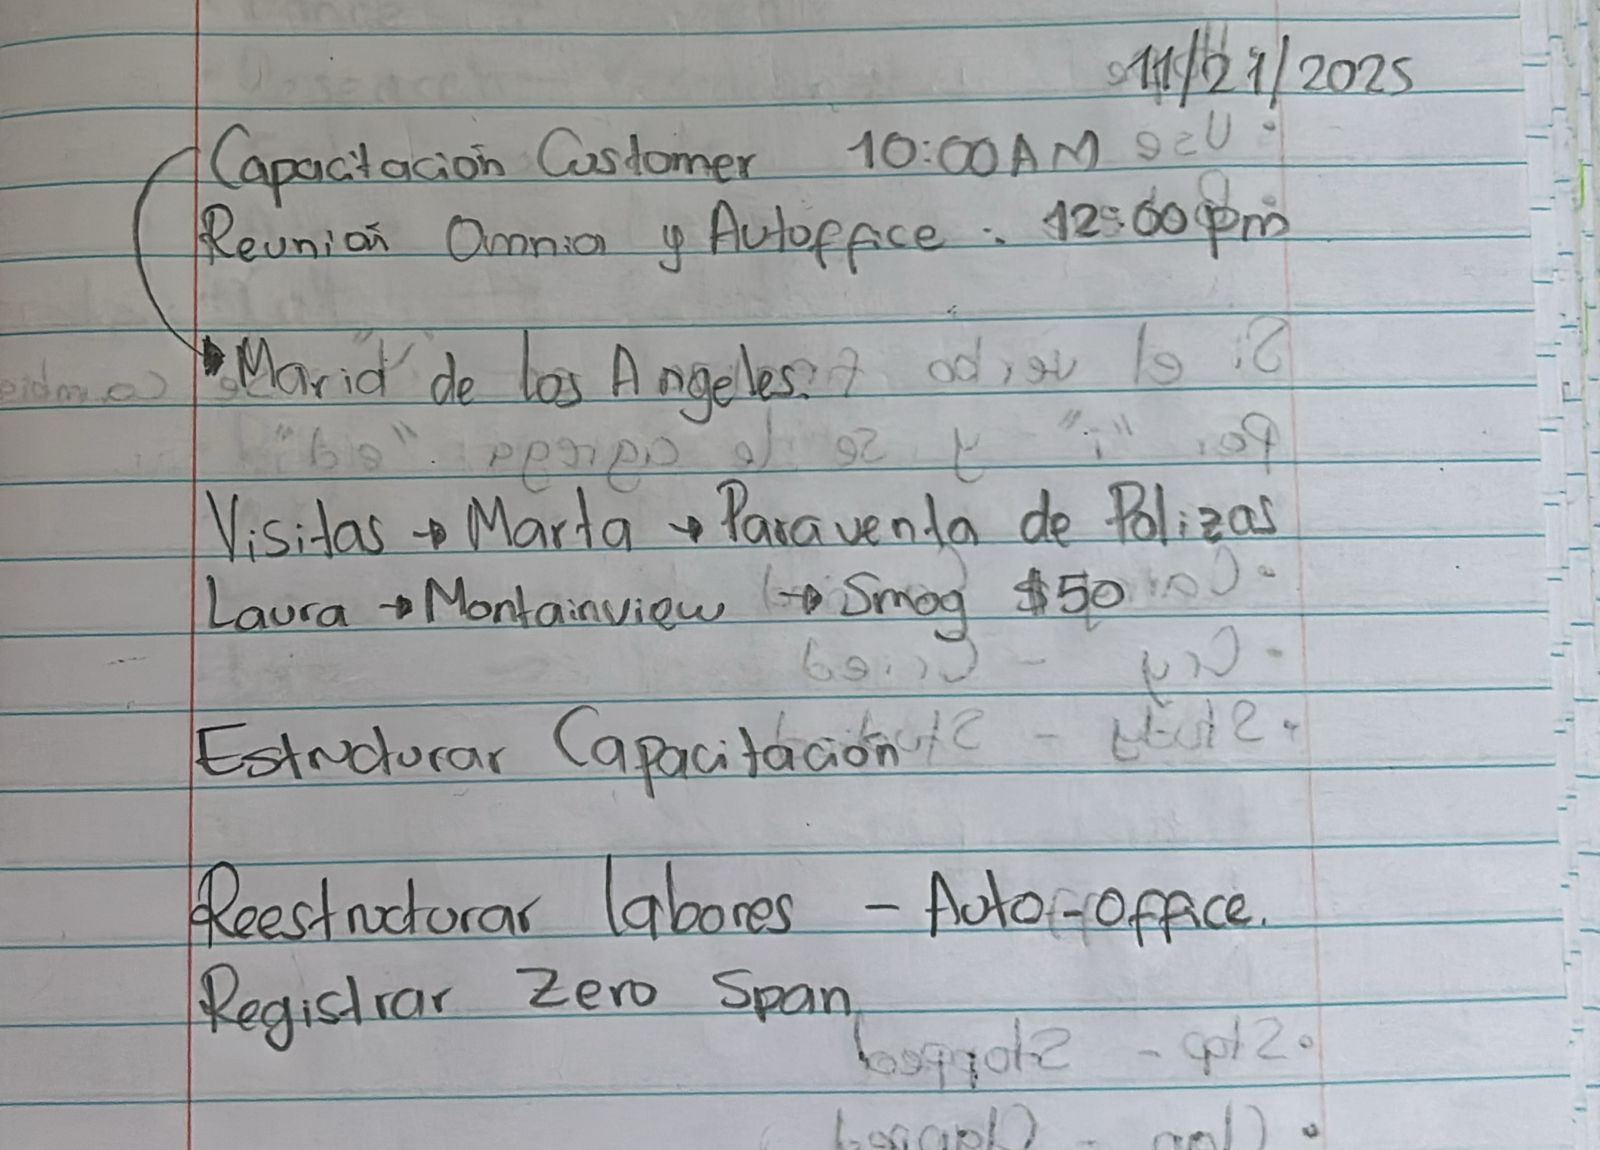 11/21/2025
Capacitación Customer 10:00AM
Reunión Omnia y Autoffice : 12:00pm
Maria de los Angeles.
Visitas → Marta → Para venta de Polizas
Laura → Montainview → Smog $50
Estructurar Capacitación
Reestructurar labores - Auto-office.
Registrar Zero Span